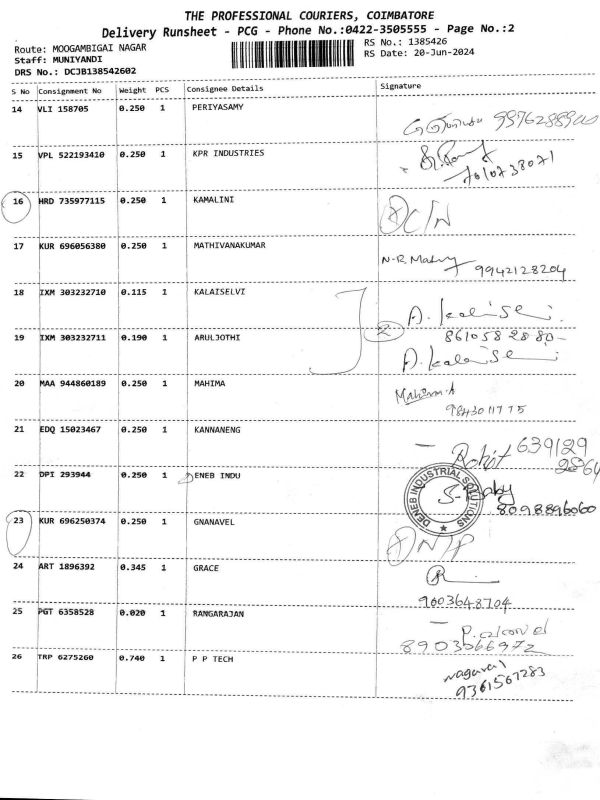 THE PROFESSIONAL COURIERS, COIMBATORE
Delivery Runsheet - PCG - Phone No.:0422-3505555 - Page No.:2
Route: MOOGAMBIGAI NAGAR RS No.: 1385426
Staff: MUNIYANDI RS Date: 20-Jun-2024
DRS No.: DCJB138542602
S No Consignment No Weight PCS Consignee Details Signature
14 VLI 158705 0.250 1 PERIYASAMY
15 VPL 522193410 0.250 1 KPR INDUSTRIES
7010738071
16 HRD 735977115 0.250 1 KAMALINI
17 KUR 696056380 0.250 1 MATHIVANAKUMAR
9942128204
18 IXM 303232710 0.115 1 KALAISELVI
2
19 IXM 303232711 0.190 1 ARULJOTHI
8610582880
20 MAA 944860189 0.250 1 MAHIMA
Mahima.A
9843011775
21 EDQ 15023467 0.250 1 KANNANENG
Rohit 639129
2864
22 DPI 293944 0.250 1 DENEB INDU
DENEB INDUSTRIAL SOLUTIONS
8098896060
23 KUR 696250374 0.250 1 GNANAVEL
24 ART 1896392 0.345 1 GRACE
9003648704
25 PGT 6358528 0.020 1 RANGARAJAN
8903566972
26 TRP 6275260 0.740 1 P P TECH
9361567283